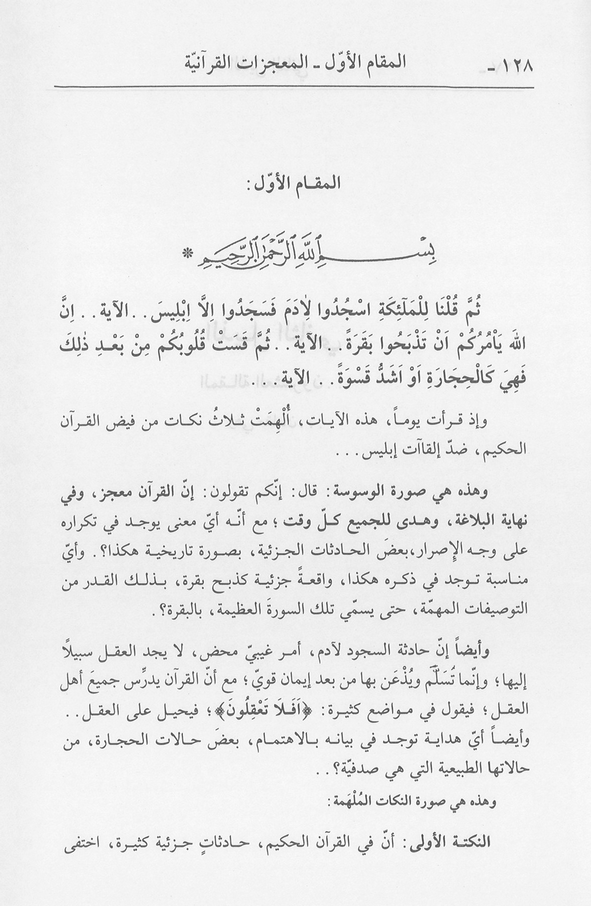 ١٢٨ - المقام الأوّل - المعجزات القرآنيّة
المقـام الأوّل:
بِسْـــمِ اللَّهِ الرَّحْمَٰنِ الرَّحِيمِ *
ثُمَّ قُلْنَا لِلْمَلٰٓئِكَةِ اسْجُدُوا لِاٰدَمَ فَسَجَدُوا اِلَّا اِبْلِيسَ..الآية.. اِنَّ
اللهَ يَاْمُرُكُمْ اَنْ تَذْبَحُوا بَقَرَةً.. الآية.. ثُمَّ قَسَتْ قُلُوبُكُمْ مِنْ بَعْـدِ ذٰلِكَ
فَهِيَ كَالْحِجَارَةِ اَوْ اَشَدُّ قَسْوَةً.. الآية...
وإذ قـرأت يومـاً، هذه الآيـات، أُلْهِمَتْ ثـلاثُ نكـات من فيض القـرآن
الحكيم، ضدّ إلقاآت إبليس...
وهذه هي صورة الوسوسة: قال: إنّكم تقولون: إنّ القرآن معجز، وفي
نهاية البلاغة، وهـدى للجميع كـلّ وقت؛ مع أنّـه أيّ معنى يوجـد في تكراره
على وجـه الإصرار،بعضَ الحـادثات الجزئيـة، بصـورة تاريخيـة هكذا؟. وأيّ
منـاسبة تـوجد في ذكـره هكذا، واقعـةً جزئيـة كذبـح بقرة، بـذلـك القدر من
التوصيفات المهمّة، حتى يسمّي تلك السورةَ العظيمة، بالبقرة؟.
وأيضاً إنّ حادثة السجود لآدم، أمـر غيبيّ محض، لا يجد العقـل سبيلًا
إليها؛ وإنّمـا تُسَلَّم ويُذْعَن بها من بعد إيمان قويّ؛ مع أنّ القرآن يدرِّس جميعَ أهل
العقـل؛ فيقول في مـواضع كثيـرة: ﴿اَفَـلَا تَعْقِلُونَ﴾؛ فيحيـل على العقـل..
وأيضـاً أيّ هدايـة توجـد في بيانـه بـالاهتمـام، بعضَ حالات الحجـارة، من
حالاتها الطبيعية التي هي صدفيّة؟..
وهذه هي صورة النكات المُلْهَمة:
النكتـة الأولى: أنّ في القرآن الحكيم، حـادثـاتٍ جزئية كثيـرة، اختفى